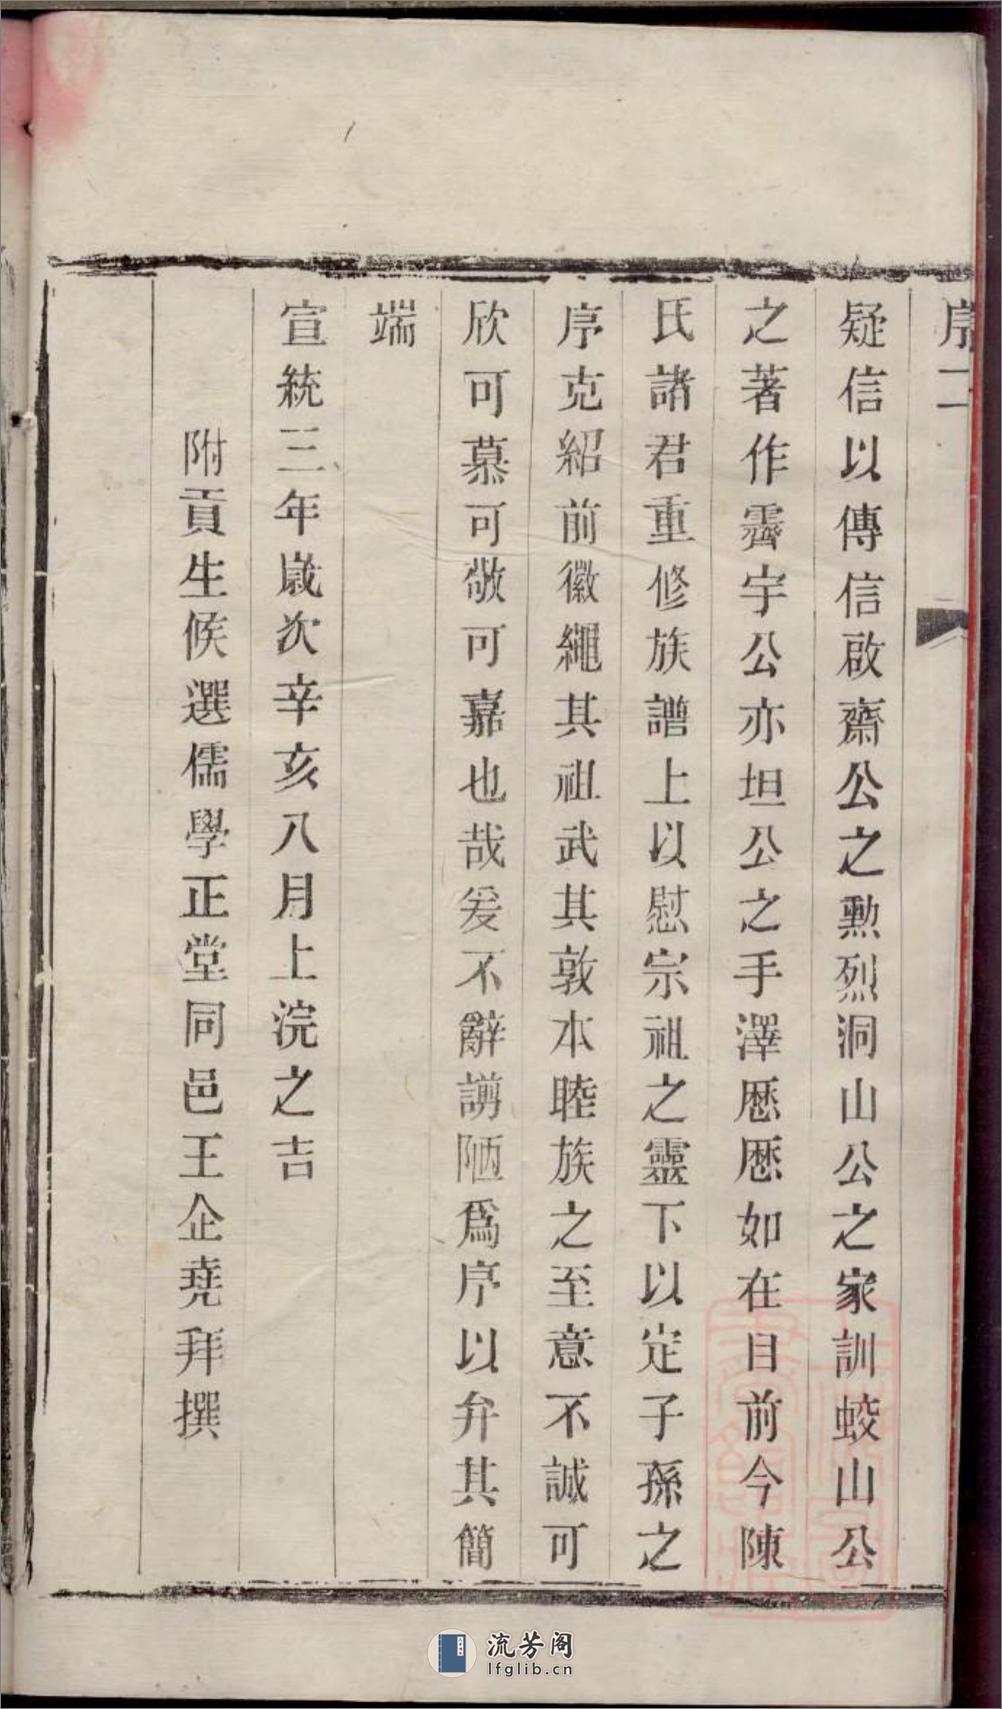 序二
疑信以傳信啟齋公之勲烈洞山公之家訓蛟山公
之著作霽宇公亦坦公之手澤厯厯如在目前今陳
氏諸君重修族譜上以慰宗祖之靈下以定子孫之
序克紹前徽繩其祖武其敦本睦族之至意不誠可
欣可慕可敬可嘉也哉爰不辭譾陋爲序以弁其簡
端
宣統三年嵗次辛亥八月上浣之吉
附貢生候選儒學正堂同邑王企堯拜撰
流芳阁
lfglib.cn